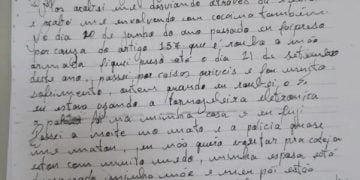 acabei me desviando através
e acabei me envolvendo com cocaína também
No dia de junho do ano passado eu fui preso
por causa do artigo 157 que é, roubo a mão
armada fiquei preso até o dia 21 de setembro
deste ano, passei por coisas e foi muito
sofrimento,
eu estava usando a tornozeleira eletronica
na minha casa e eu fugi
Passei a noite no mato e a policia quase
me matou, eu não quero voltar pra cadeia
estou com muito medo, minha esposa está
minha mãe e meu pai estão